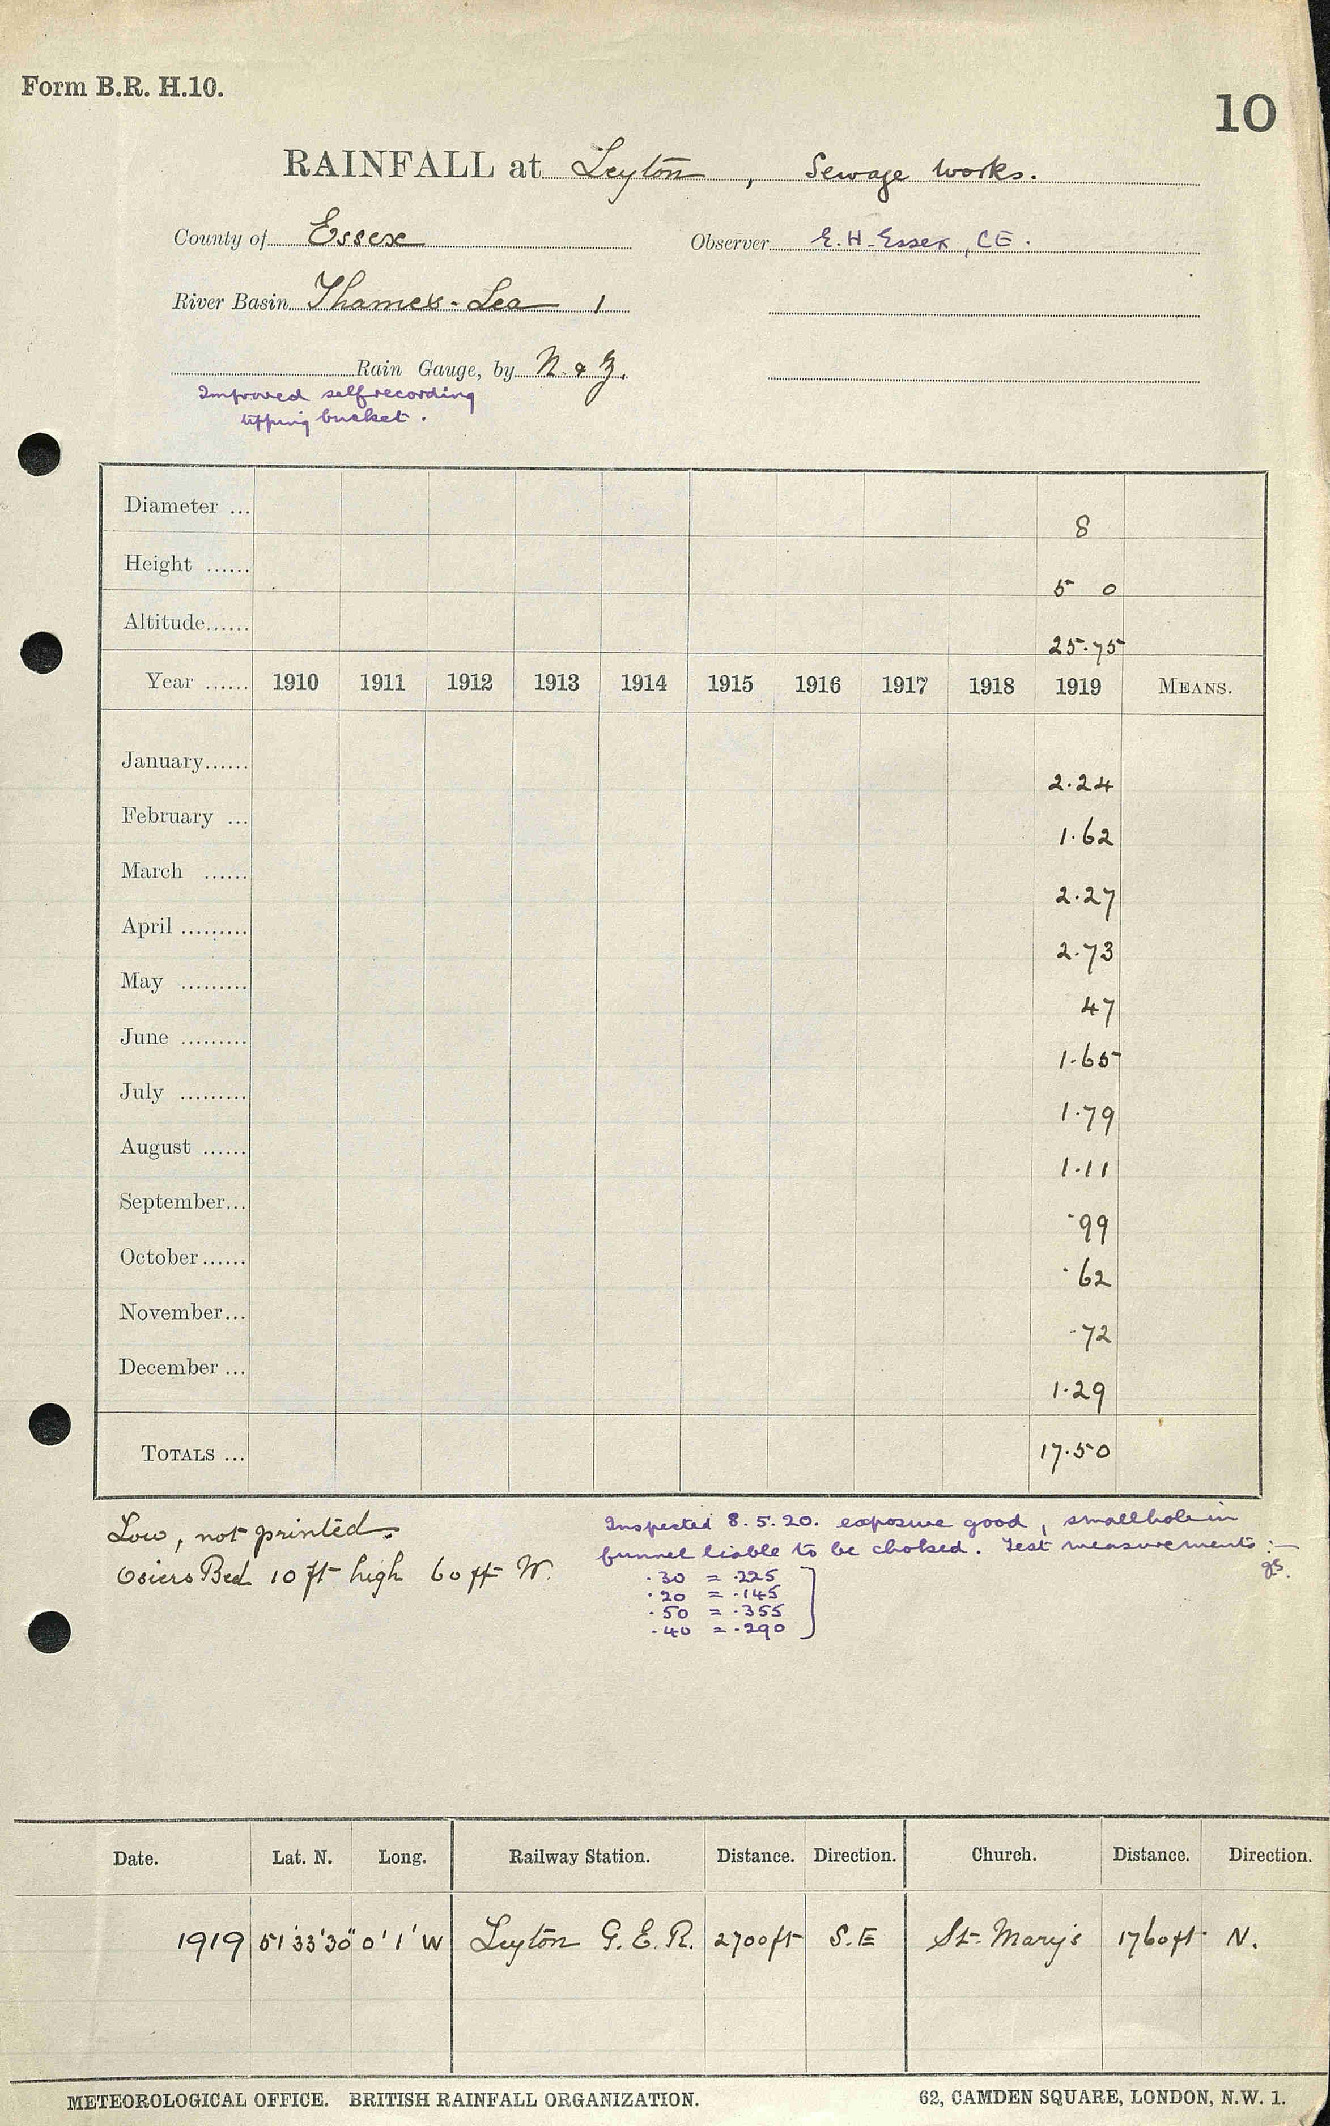 Form B.R. H.10.
10
RAINFALL at Leyton, Sewage Works.
County of Essex Observer E. H. Essex, CE.
River Basin Thames - Lea 1
Rain Gauge, by N. & Z.
Improved self recording
tipping bucket.
Diameter ... 8
Height ...... 5 0
Altitude...... 25.75
Year ...... 1910 1911 1912 1913 1914 1915 1916 1917 1918 1919 MEANS.
January...... 2.24
February ... 1.62
March ...... 2.27
April ......... 2.73
May ......... 47
June ......... 1.65
July ......... 1.79
August ...... 1.11
September... .99
October...... .62
November... .72
December ... 1.29
TOTALS ... 17.50
Low, not printed.
Osiers Bed 10 ft high 60 ft W.
Inspected 8.5.20. exposure good, small hole in
funnel liable to be choked. Test measurements :—
.30 = .225
.20 = .145
.50 = .355
.40 = .290
Date. Lat. N. Long. Railway Station. Distance. Direction. Church. Distance. Direction.
1919 51°33'30" 0°1' W Leyton G.E.R. 2700ft S.E St. Mary's 1760ft N.
METEOROLOGICAL OFFICE. BRITISH RAINFALL ORGANIZATION. 62, CAMDEN SQUARE, LONDON, N.W. 1.